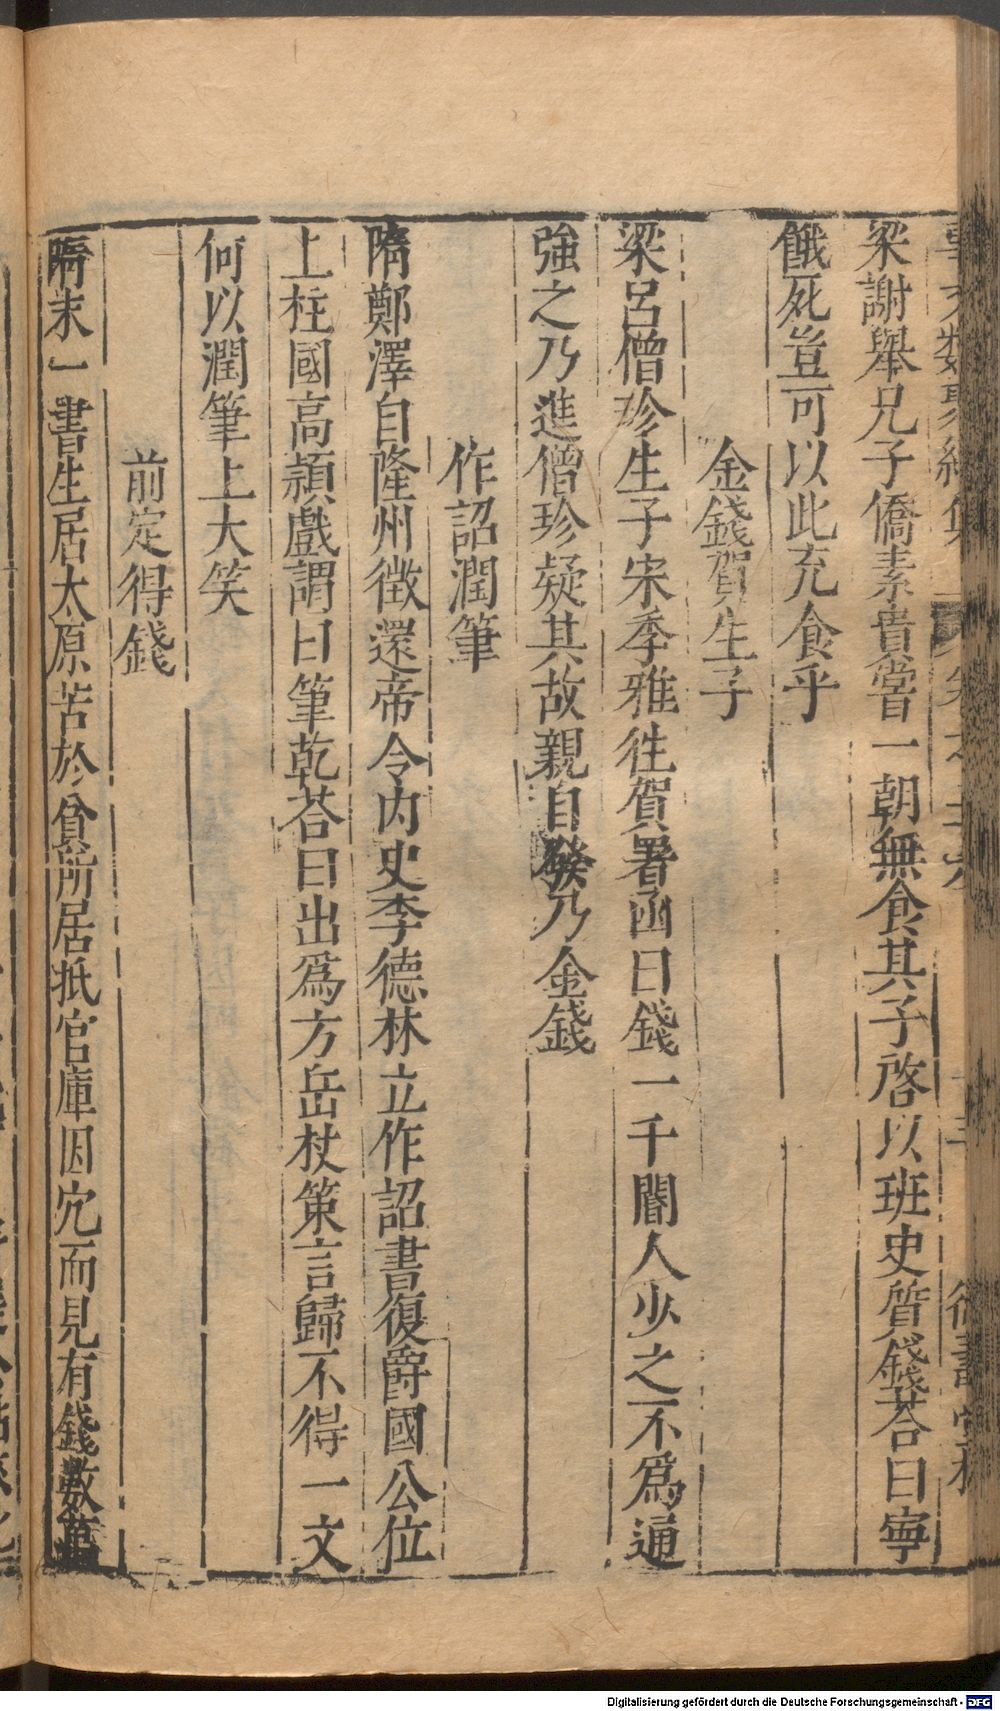 集 卷之二十六 十三 德壽堂梓
梁謝舉兄子僑素貴嘗一朝無食其子啓以班史質錢荅曰寧
餓死豈可以此充食乎
金錢賀生子
梁呂僧珍生子宋季雅徃賀署函曰錢一千閽人少之不爲通
強之乃進僧珍疑其故親自發乃金錢
作詔潤筆
隋鄭澤自隆州徵還帝令内史李德林立作詔書復爵國公位
上柱國高熲戲謂曰筆乾荅曰出爲方岳杖策言歸不得一文
何以潤筆上大笑
前定得錢
隋末一書生居太原苦於貧所居抵官庫因穴而見有錢數萬
Digitalisierung gefördert durch die Deutsche Forschungsgemeinschaft - DFG